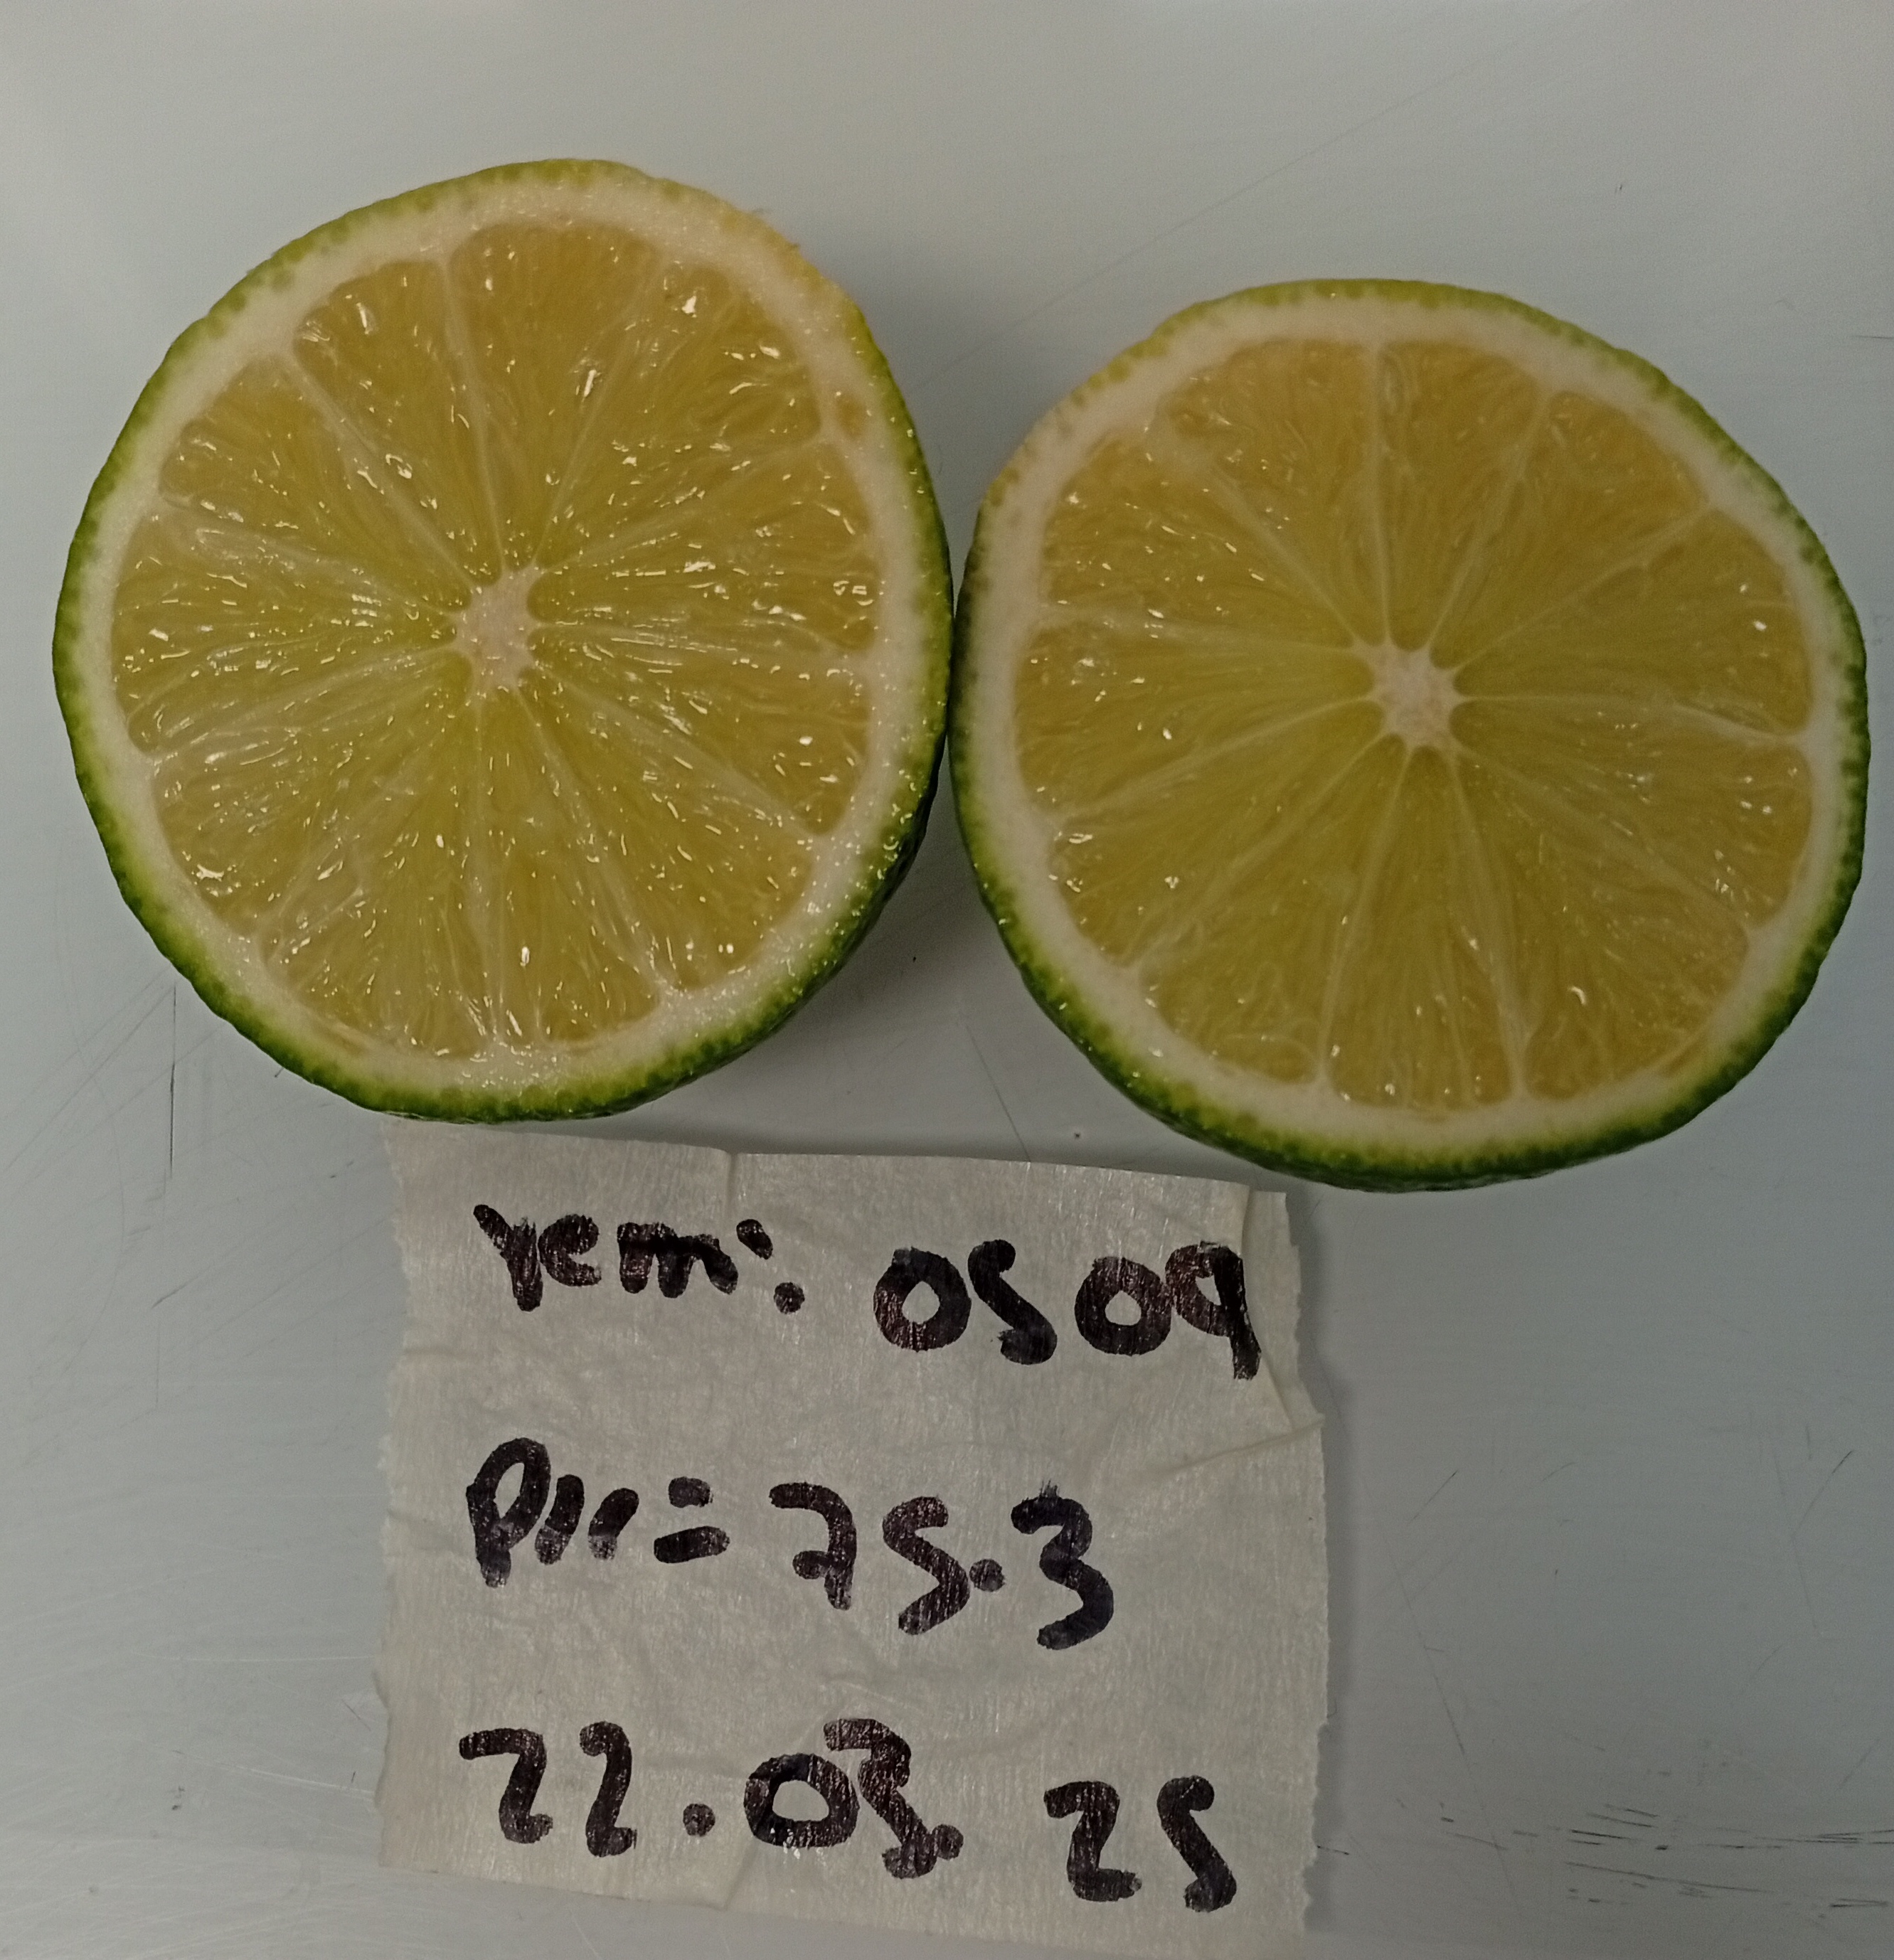 rem: 0509
Pu= 75.3
22.03.25